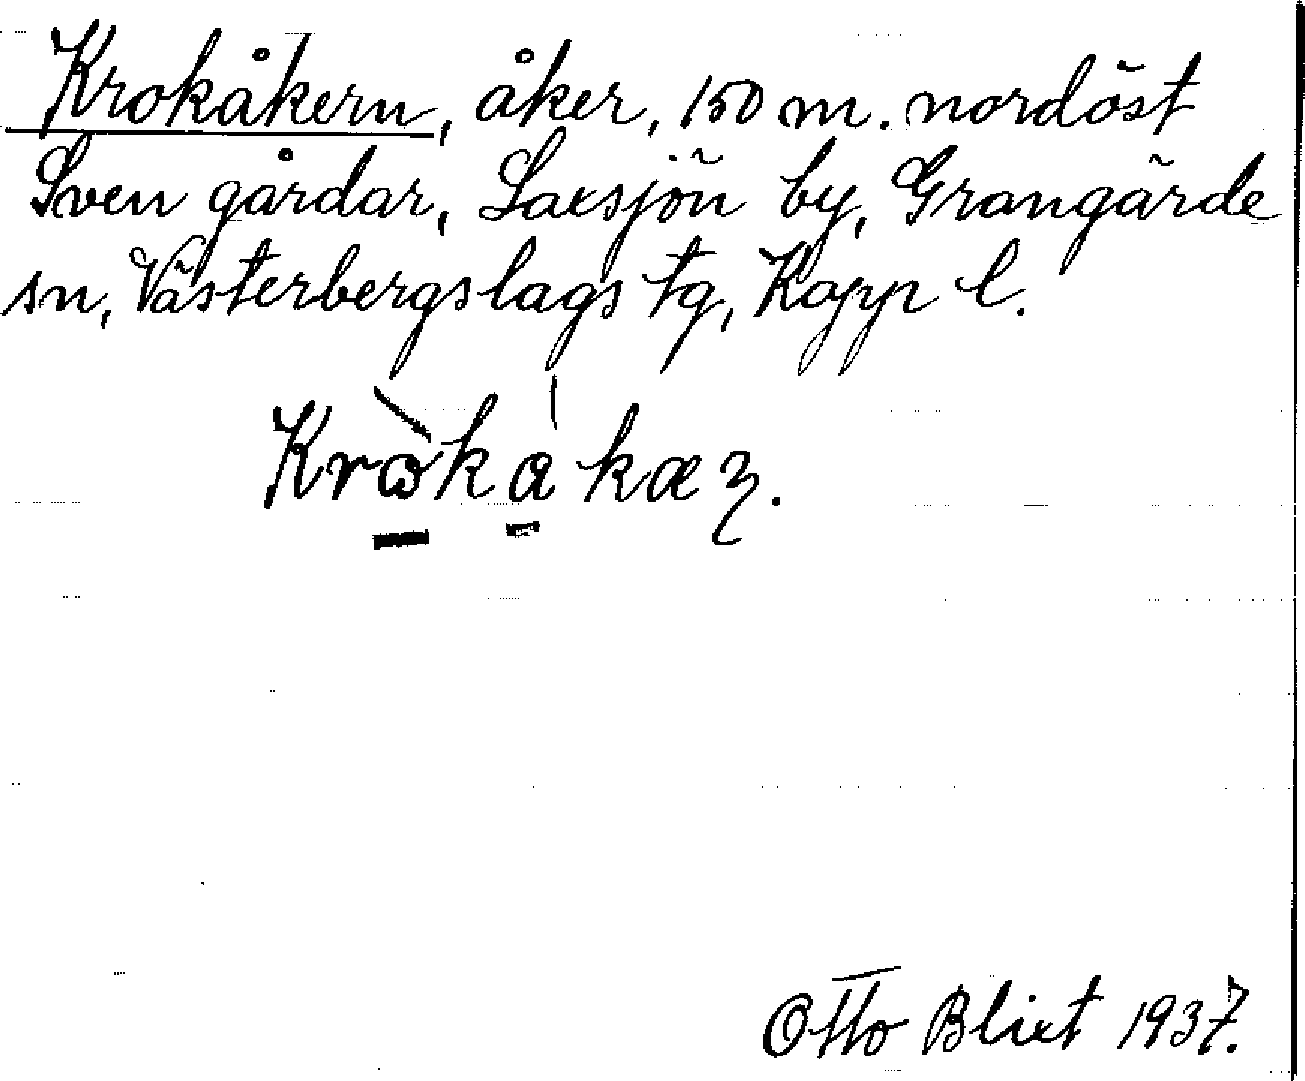 Krokåkern, åker, 150 m. nordöst
Sven gårdar, Laxsjön by, Grangärde
sn, Västerbergslags tg, Kopp l.
Otto Blixt 1937.